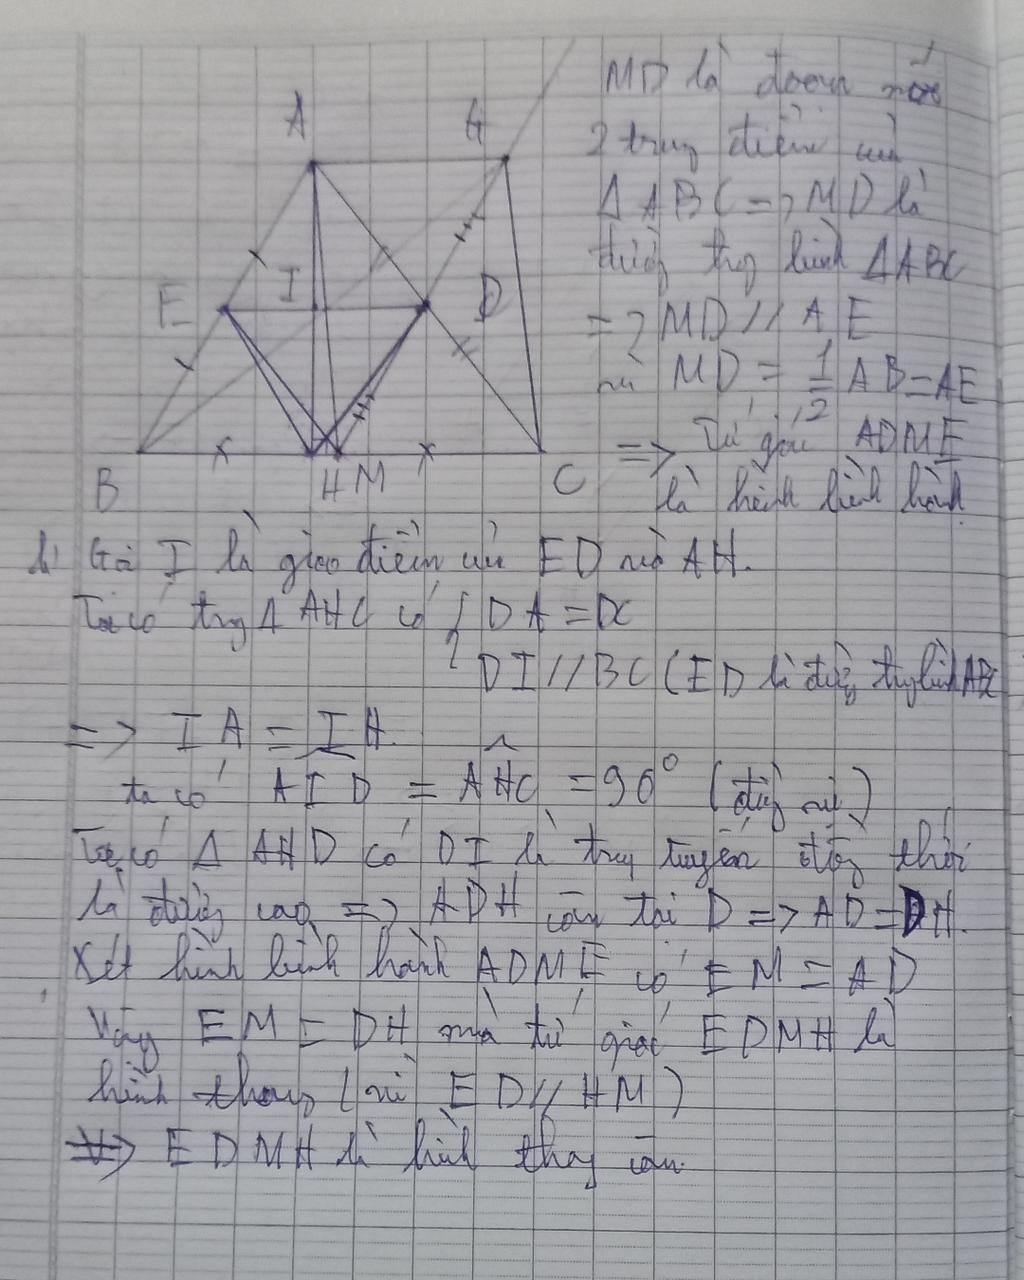 A G
E I D
B H M C
MD là đoạn nối
2 trung điểm của
Δ ABC => MD là
đường trg bình ΔABC
=> MD // AE
và MD = 1/2 AB = AE
=> Tứ giác ADME
là hình bình hành
b) Gọi I là giao điểm của ED và AH.
Ta có trg Δ AHC có { DA = DC
DI // BC (ED là đường trg bình ABC
=> IA = IH.
ta có AID = AHC = 90° (đồng vị)
Ta có Δ AHD có DI là trung tuyến đồng thời
là đường cao => ADH cân tại D => AD = DH.
Xét hình bình hành ADME có EM = AD
Vậy EM = DH mà tứ giác EDMH là
hình thang (vì ED // HM)
=> EDMH là hình thang cân.